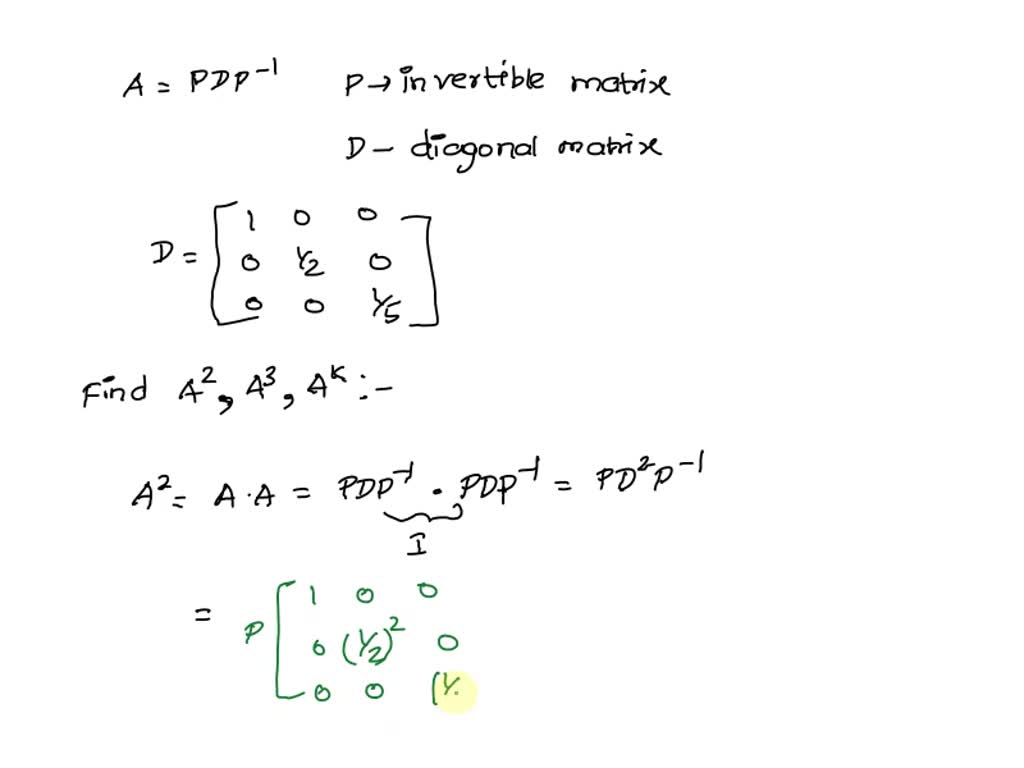 A = PDP⁻¹ P → invertible matrix
D - diagonal matrix
D = [ 1 0 0
0 1/2 0
0 0 1/5 ]
Find A², A³, Aᵏ :-
A² = A·A = PDP⁻¹ · PDP⁻¹ = PD²P⁻¹
I
= P [ 1 0 0
0 (1/2)² 0
0 0 (1/